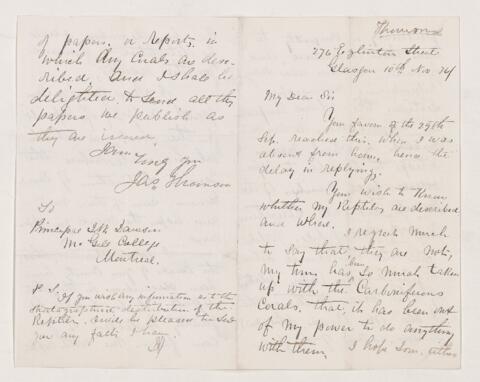 Thomson
276 Eglinton Street
Glasgow 10th Nov 74
My Dear Sir
Your favor of the 29th
Sep. reached this, when I was
absent from home, hence the
delay in replying.
You wish to know
whether my Reptiles are described
and where. I regret much
to say that, they are not,
my time has been so much taken
up with the Carboniferous
Corals, that, it has been out
of my power to do anything
with them, I hope Som. either
of papers, or reports, in
which any Corals are des-
cribed, and I shall be
delighted to send all the
papers we publish as
they are issued,
I am
Yours
Jas Thomson
To
Principal Dawson
McGill College
Montreal.
P.S. If you wish any information as to the
distribution of the
Reptiles, I would be pleased to send
you any facts I have